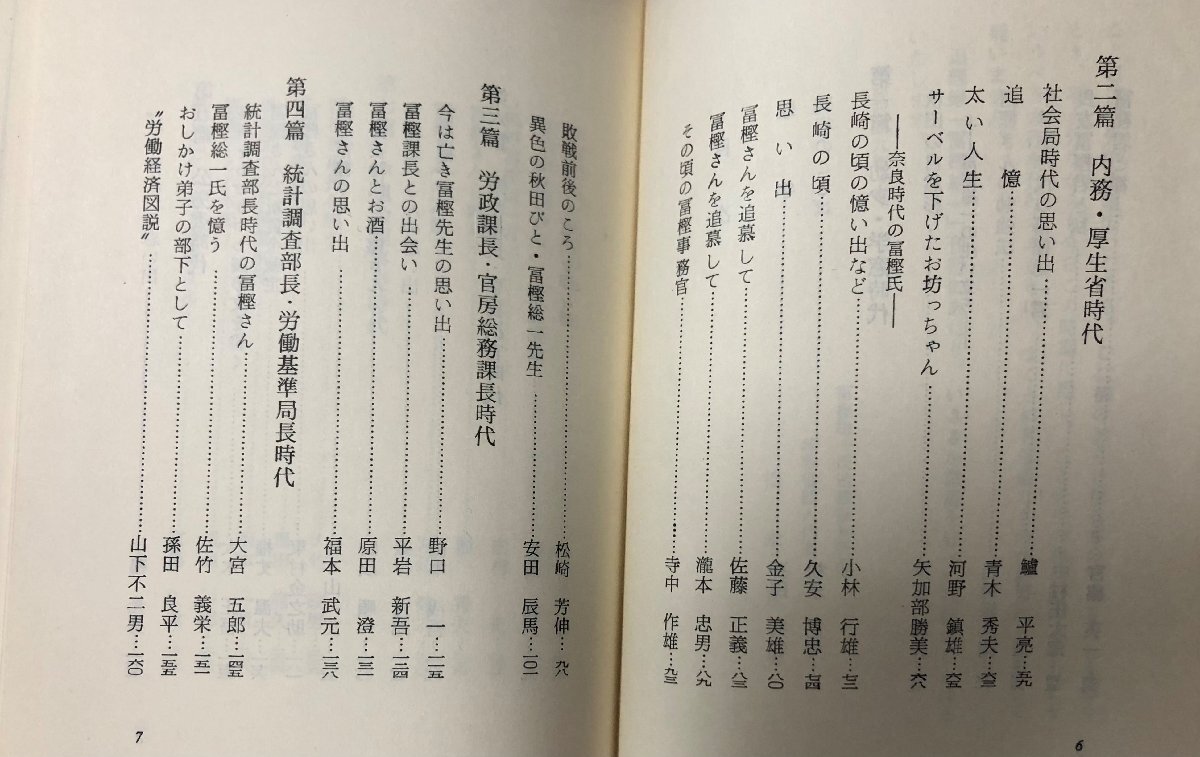 第二篇　内務・厚生省時代
社会局時代の思い出……鱸　平亮…五九
追　憶……青木　秀夫…六三
太い人生……河野　鎮雄…六五
サーベルを下げたお坊っちゃん……矢加部勝美…六八
――奈良時代の冨樫氏――
長崎の頃の憶い出など……小林　行雄…七二
長崎の頃……久安　博忠…七四
思い出……金子　美雄…八〇
冨樫さんを追慕して……佐藤　正義…八三
冨樫さんを追慕して……瀧本　忠男…八九
その頃の冨樫事務官……寺中　作雄…九三
6
敗戦前後のころ……松崎　芳伸…九八
異色の秋田びと・冨樫総一先生……安田　辰馬…一〇一
第三篇　労政課長・官房総務課長時代
今は亡き冨樫先生の思い出……野口　一…一二五
冨樫課長との出会い……平岩　新吾…一二四
冨樫さんとお酒……原田　澄…一三一
冨樫さんの思い出……福本　武元…一三八
第四篇　統計調査部長・労働基準局長時代
統計調査部長時代の冨樫さん……大宮　五郎…一四五
冨樫総一氏を憶う……佐竹　義栄…一五一
おしかけ弟子の部下として……孫田　良平…一五五
〝労働経済図説〟……山下不二男…一六〇
7